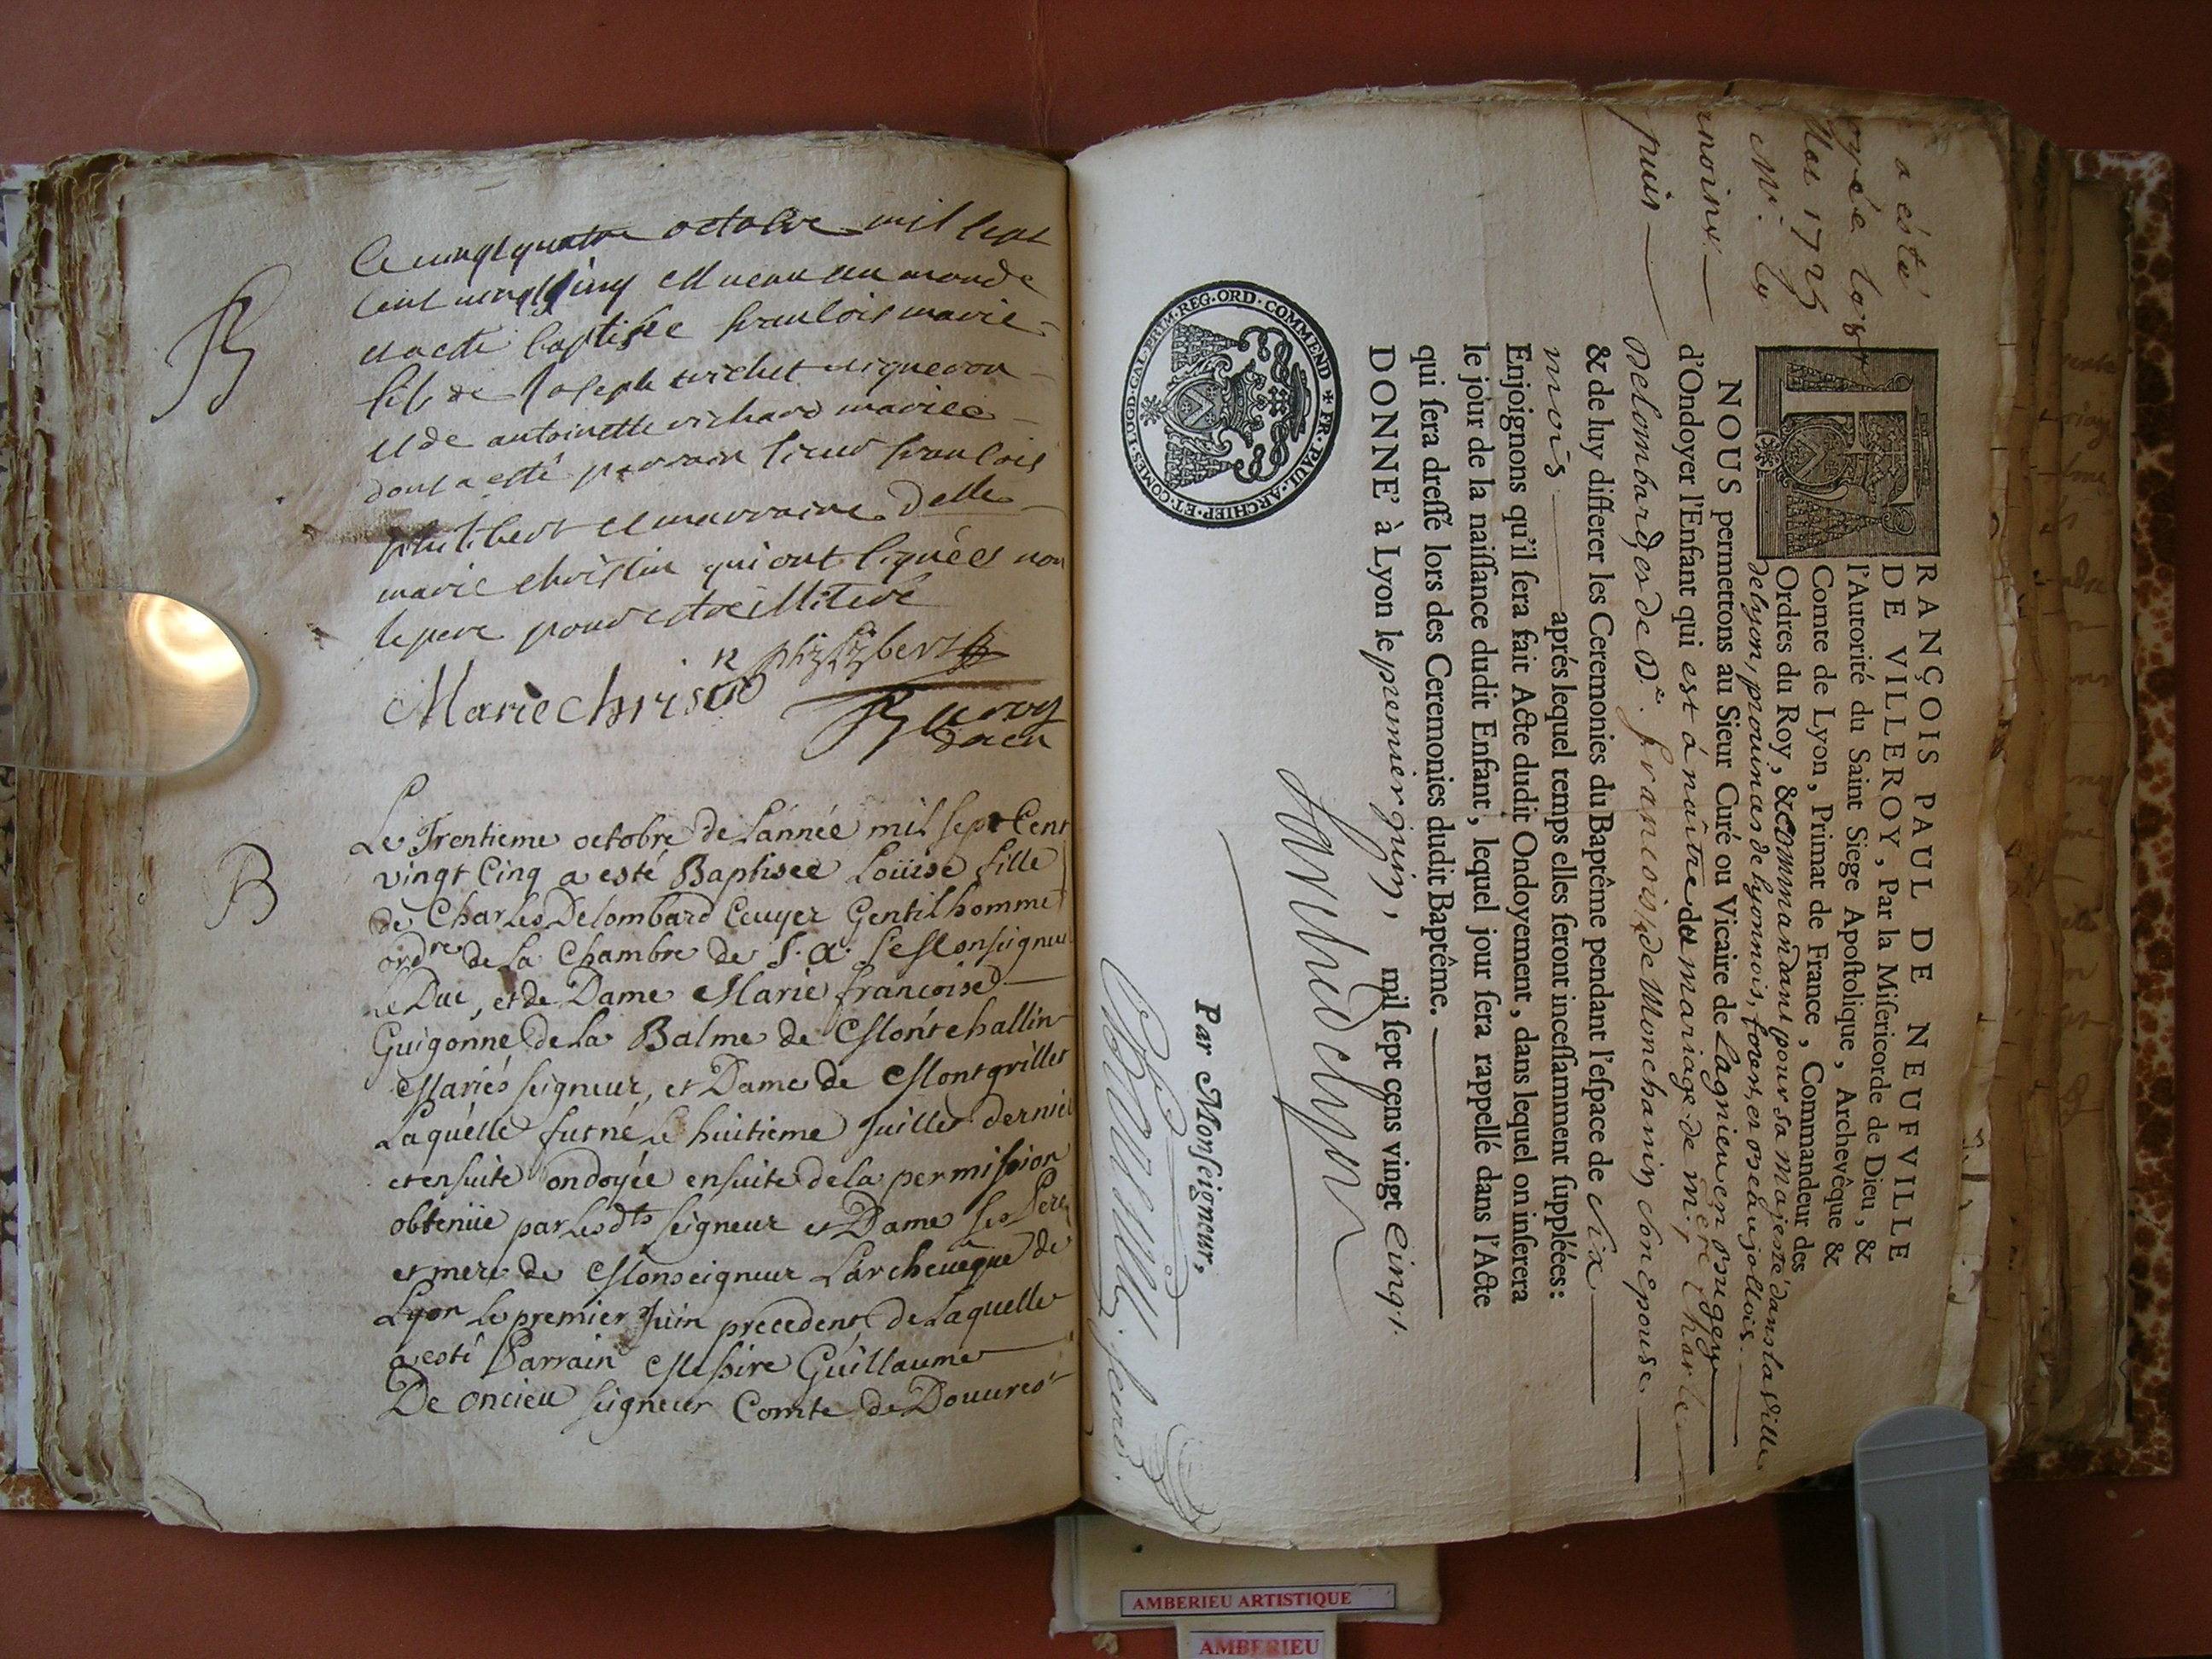 Le vingt quatre octobre mil sept
cent vingt cinq est venu au monde
et a esté baptisé francois marie
fils de Joseph vigneron
et de antoinette richard mariee
dont a esté parrain sieur francois
philibert et marraine Delle
marie christin qui ont signées non
le pere pour estre illiteré
Marie christin
philibert
B
Le Trentieme octobre de L'année mil sept Cent
vingt Cinq a esté Baptisée Loüise fille
de Charles Delombard Ecuyer Gentilhomme
ordre de La Chambre de S. A. S. Monseigneur
Le Duc, et de Dame Marie françoise
Guigonne de La Balme de Montchallin
Mariés seigneur, et Dame de Montgrillet
Laquelle fut né Le huitieme Juillet dernier
et ensuite ondoyée ensuite de la permission
obtenüe par Lesdts seigneur et Dame ses Pere
et mere de Monseigneur L'archeuêque de
Lyon Le premier Juin precedent de Laquelle
a esté Parrain Messire Guillaume
De oncieu seigneur Comte de Douures
a esté
1725
Mr.
puis
FRANÇOIS PAUL DE NEUFVILLE
DE VILLEROY, Par la Misericorde de Dieu, &
l'Autorité du Saint Siege Apostolique, Archevêque &
Comte de Lyon, Primat de France, Commandeur des
Ordres du Roy, & commandant pour sa Majesté dans la ville
de lyon, prouinces de lyonnois, forest, et beaujollois.
NOUS permettons au Sieur Curé ou Vicaire de Lagnieu en bugey
d'Ondoyer l'Enfant qui est à naître du mariage de mre. Charle
Delombard et de De. francoise de Monchanin son Epouse
& de luy differer les Ceremonies du Baptême pendant l'espace de six
mois aprés lequel temps elles seront incessamment suppléées:
Enjoignons qu'il sera fait Acte dudit Ondoyement, dans lequel on inserera
le jour de la naissance dudit Enfant, lequel jour sera rappellé dans l'Acte
qui sera dressé lors des Ceremonies dudit Baptême.
DONNE' à Lyon le premier juin, mil sept cens vingt Cinq.
✶ FR. PAUL. ARCHIEP. ET. COMES. LUGD. GAL. PRIM. REG. ORD. COMMEND
Par Monseigneur,
AMBERIEU ARTISTIQUE
AMBERIEU